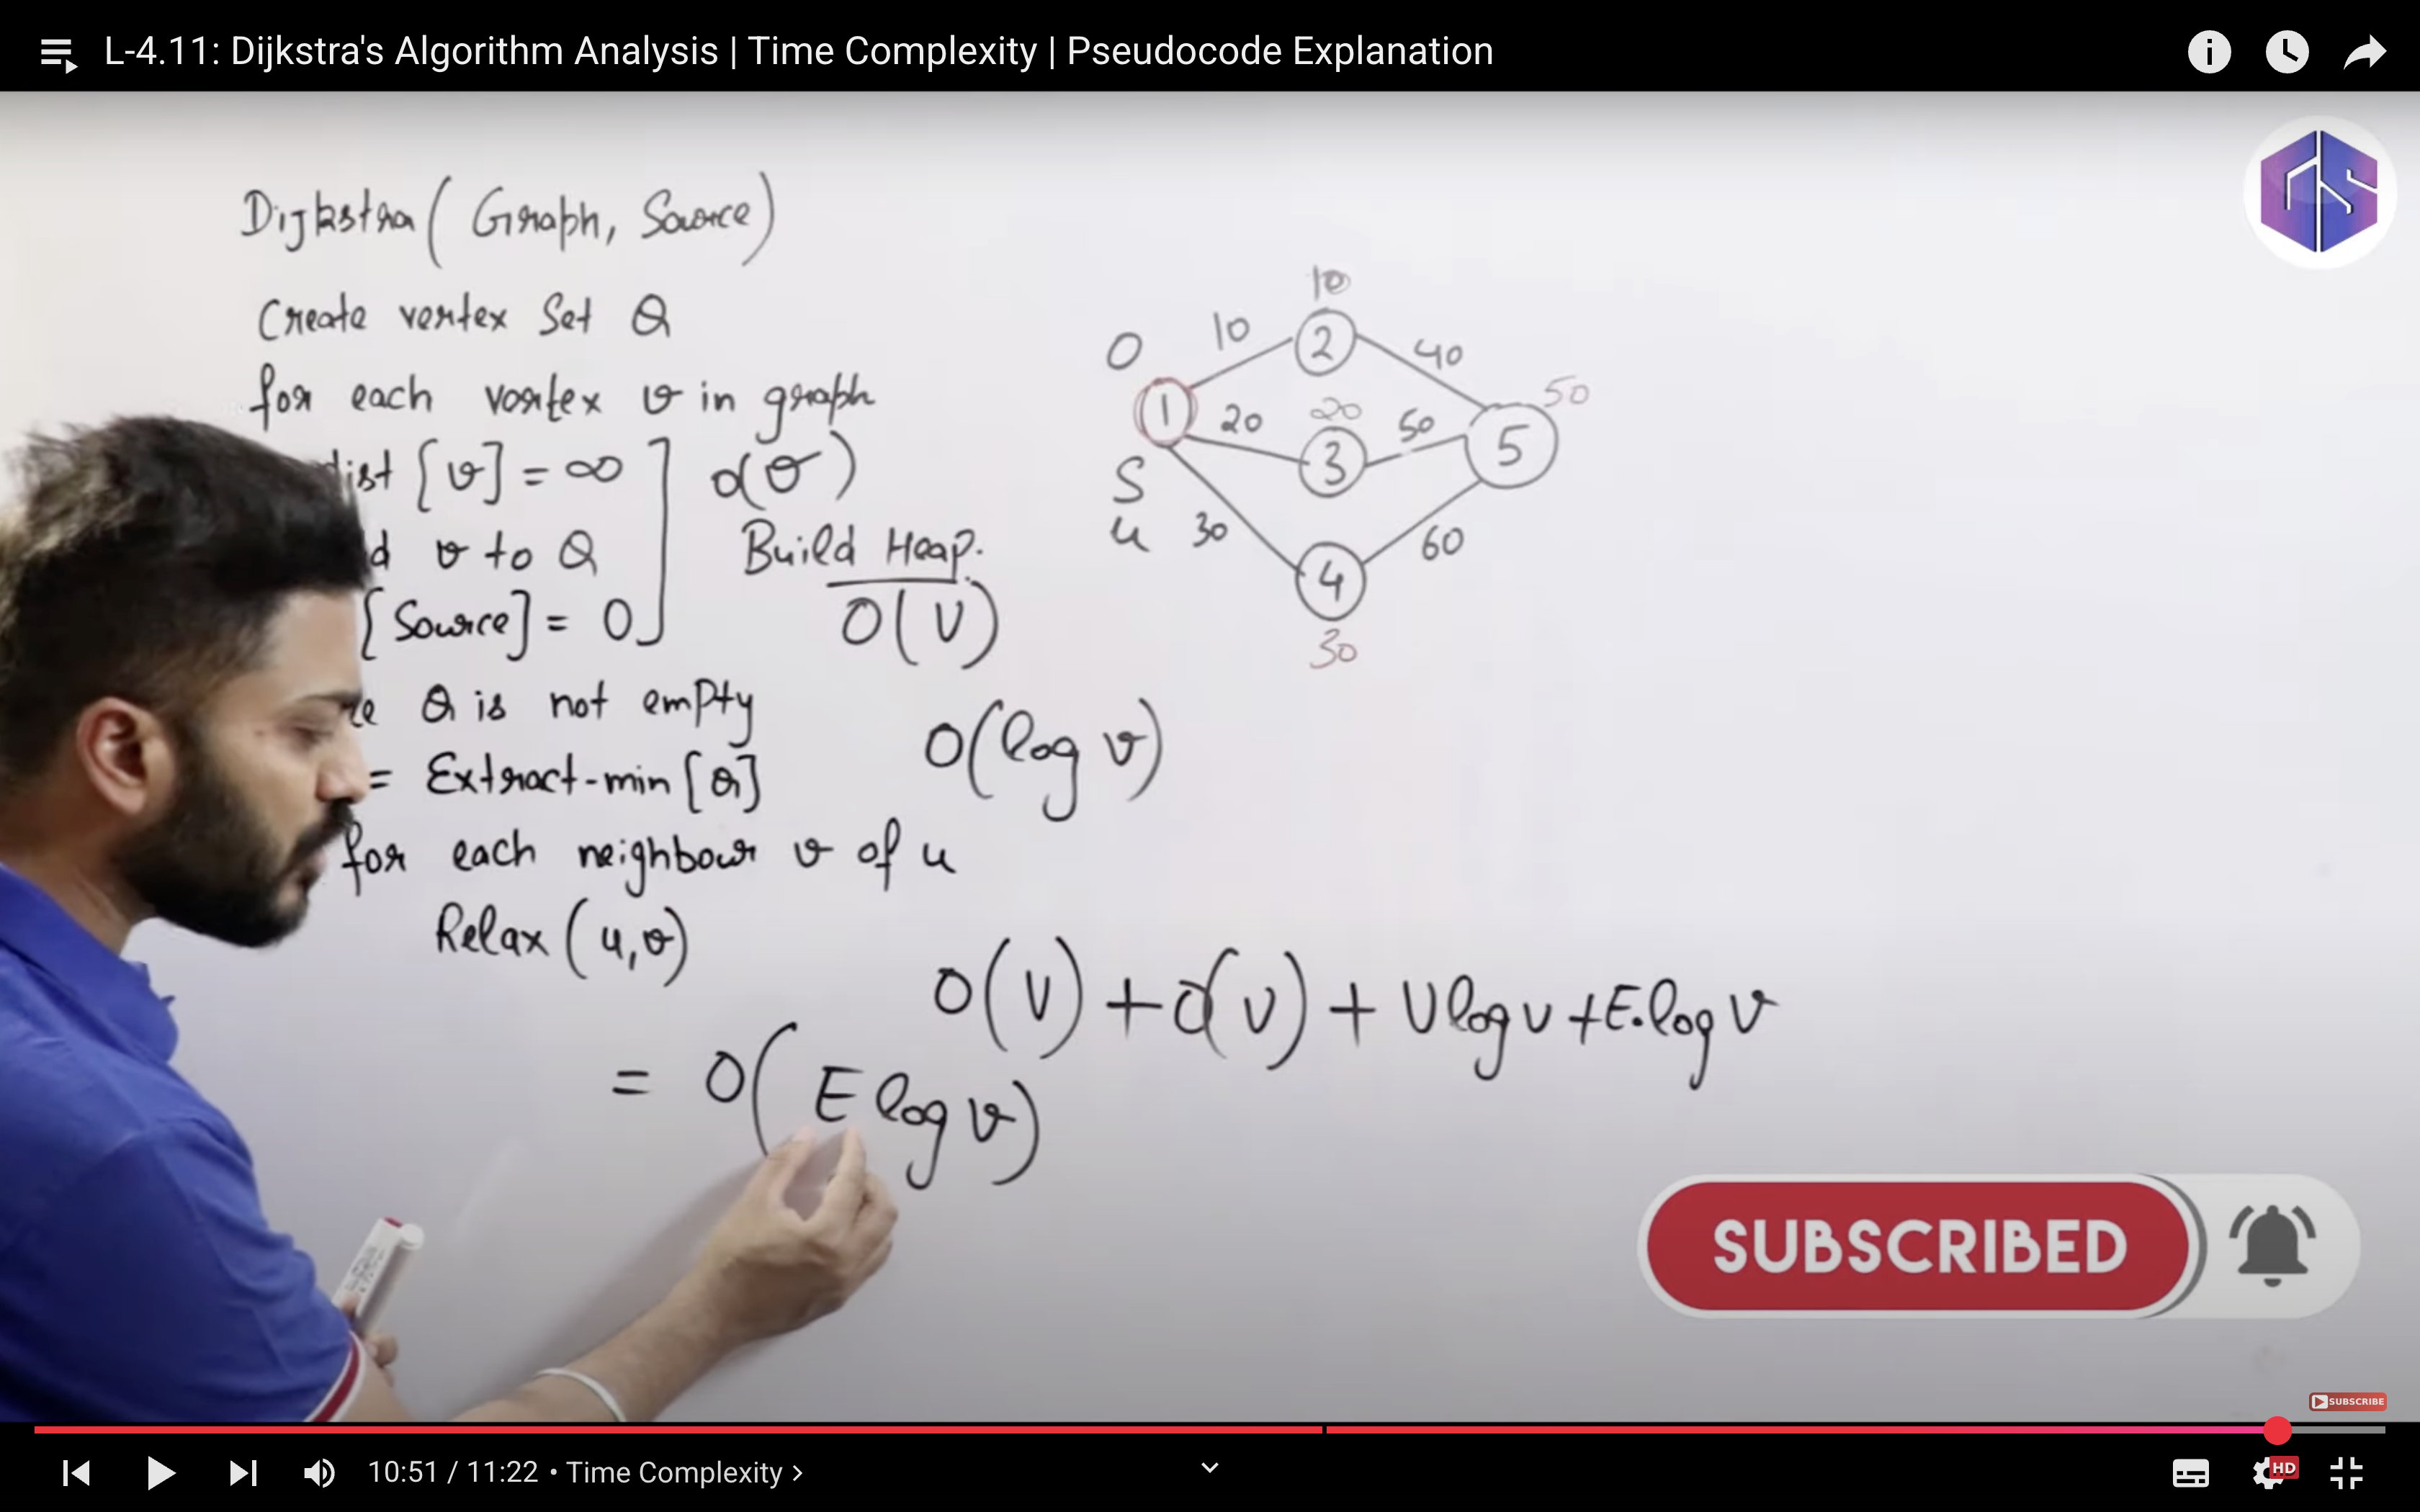 L-4.11: Dijkstra's Algorithm Analysis | Time Complexity | Pseudocode Explanation
Dijkstra ( Graph, Source)
Create vertex Set Q
for each vertex v in graph
dist [v] = ∞
v to Q
[Source] = 0
O(v)
Build Heap.
O(V)
Q is not empty
= Extract-min [Q]
O(log v)
for each neighbour v of u
Relax (u,v)
O(V) + O(V) + V log v + E.log v
= O( E log v)
10
0 10 2 40
50
1 20 20 50 5
3
S
u 30 60
4
30
SUBSCRIBED
SUBSCRIBE
10:51 / 11:22 • Time Complexity >
HD